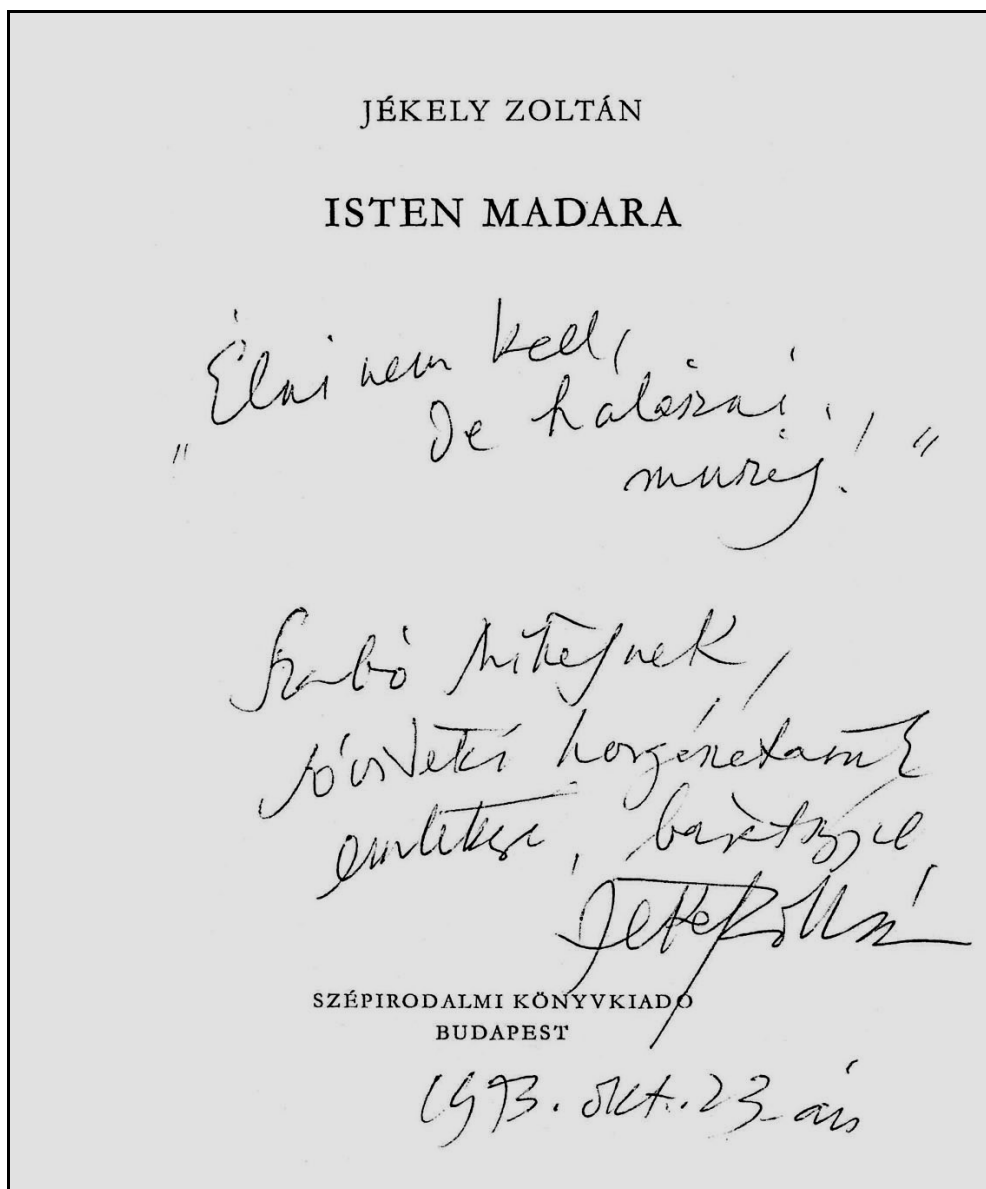 JÉKELY ZOLTÁN
ISTEN MADARA
„Élni nem kell,
De halászni
muszáj!"
Szabó
horgászatunk
emlékére, barátsággal
Jékely Zoltán
SZÉPIRODALMI KÖNYVKIADÓ
BUDAPEST
1973. okt. 23-án